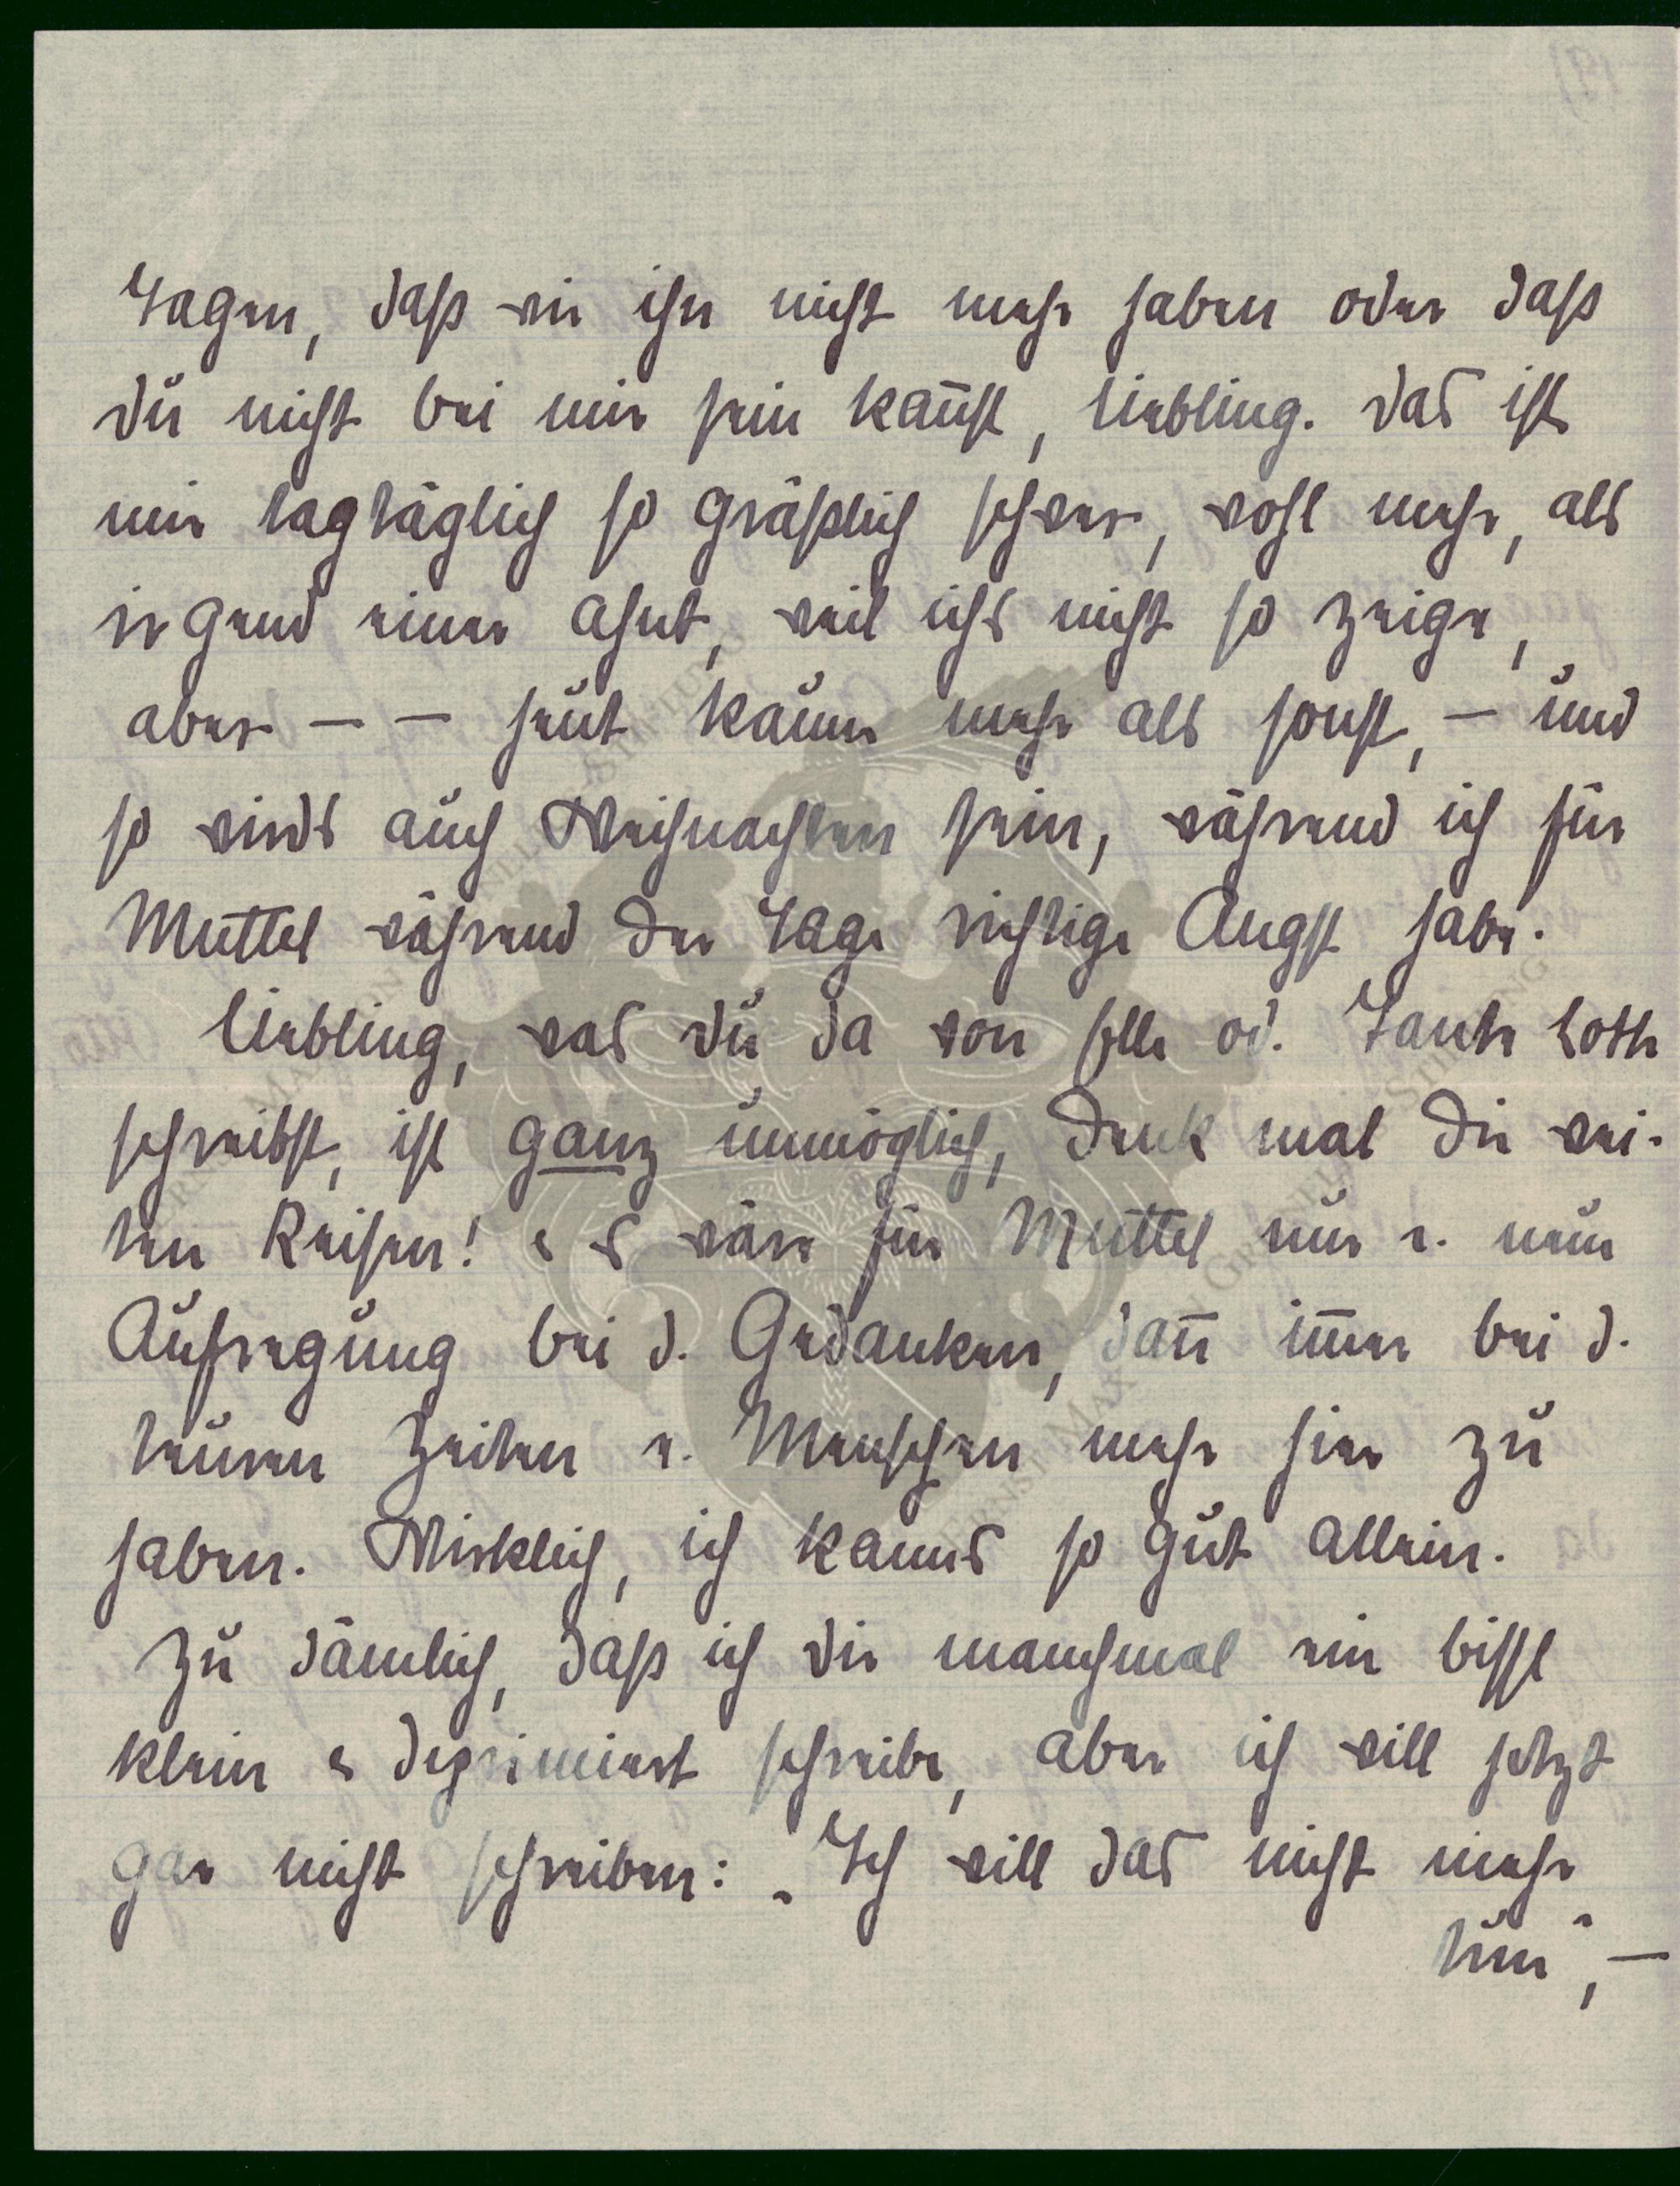 Tagen, daß wir ihn nicht mehr haben oder daß
du nicht bei mir sein kan̄st, Liebling. Das ist
mir tagtäglich so gräßlich schwer, wohl mehr, als
irgend einer ahnt, weil ichs nicht so zeige,
aber – – heut kaum mehr als sonst, – und
so wirds auch Weihnachten sein, während ich für
Muttel während der Tage richtige Angst habe.
Liebling, was du da von Elle od. Tante Lotte
schreibst, ist ganz unmöglich, denk mal die wei-
ten Reisen! Es wäre für Muttel nur e. neue
Aufregung bei d. Gedanken, dan̄ im̄er bei d.
teuren Zeiten e. Menschen mehr hier zu
haben. Wirklich, ich kanns so gut allein.
Zu dämlich, daß ich dir manchmal ein bissl
klein & deprimiert schreibe, aber ich will jetzt
gar nicht schreiben: „Ich will das nicht mehr
tun“, –